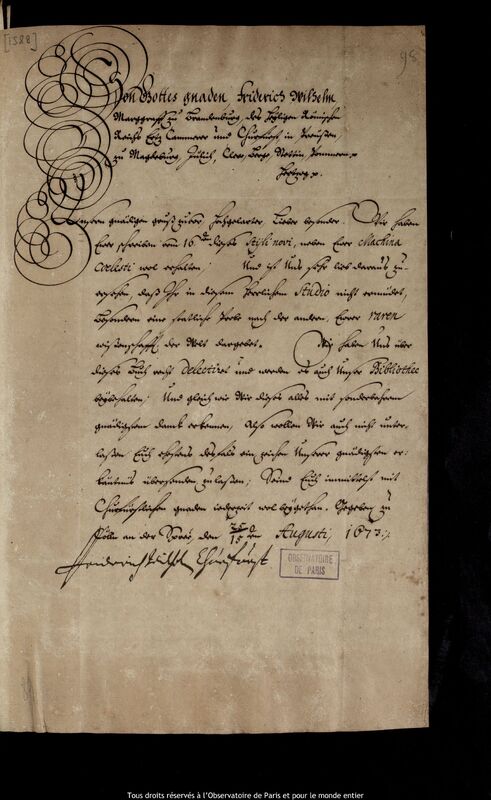 [1588]
98
Von Gottes gnaden Friderich Wilhelm
Marggraff zu Brandenburg, des Heyligen Römischen
Reichs Ertz Cammerer und Churfürst in Preussen,
zu Magdeburg, Jülich, Cleve, Berge, Stettin, Pommern
Hertzog
Unsern gnädigen gruß zuvor, Hochgelarter, Lieber besonder. Wir haben
Ewer schreiben vom 16 dieses Styli novi, neben Ewer Machina
Coelesti wol erhalten, Und ist Uns sehr lieb daraus zu
ersehen, daß Ihr in diesem Herrlichem Studio nicht ermüdet,
besondern eine stattliche Probe nach der andern, Ewrer raren
wissenschafft der Welt dargebet. Wir haben Uns über
dieses Buch recht delectiret und werden es auch Unser Bibliothec
beybehalten; Und gleich wie Wir dieses alles mit sonderbahrem
gnädigstem danck erkennen, Also wollen Wir auch nicht unter-
lassen Euch ehestens desfals ein zeichen Unserer gnädigsten er-
käntnus übersenden zu lassen; Seind Euch immittelst mit
Churfürstlichen gnaden iederzeit wol beygethan. Gegeben zu
Cölln an der Spree, den 25/15 Augusti, 1673.
Friedrich Wilhelm Churfürst
OBSERVATOIRE
DE PARIS
Tous droits réservés à l'Observatoire de Paris et pour le monde entier